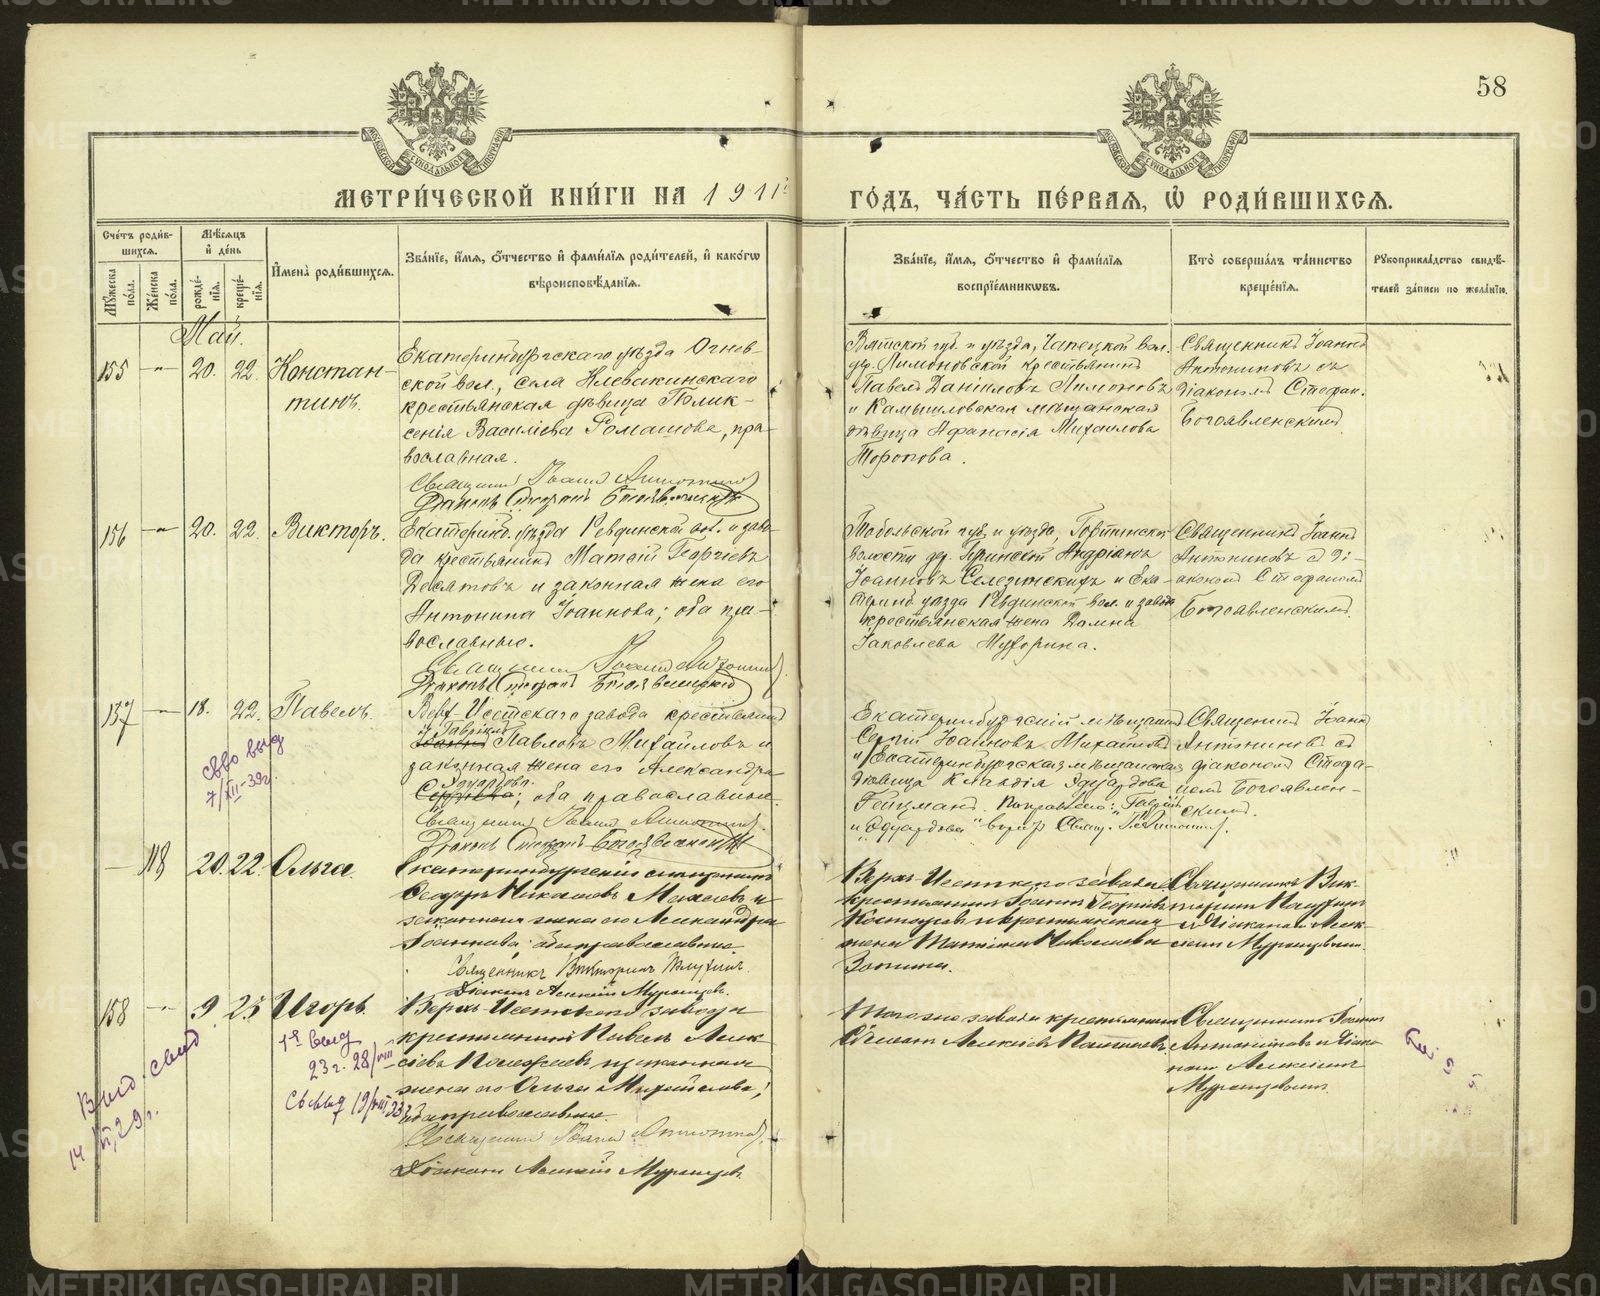 58
МОСКОВСКОЙ СѴНОДАЛЬНОЙ ТИПОГРАФІИ
МОСКОВСКОЙ СѴНОДАЛЬНОЙ ТИПОГРАФІИ
МЕТРИ́ЧЕСКОЙ КНИ́ГИ НА 1911 г.
ГО́ДЪ, ЧА́СТЬ ПЕ́РВАѦ, Ѡ РОДИ́ВШИХСѦ.
Сче́тъ роди́вшихсѧ.
Мꙋ́жеска по́ла.
Же́нска по́ла.
Мѣ́сѧцъ и҆ де́нь
рожде́нїѧ.
креще́нїѧ.
И҆мена̀ роди́вшихсѧ.
Зва́нїе, и҆́мѧ, ѻ҆́тчество и҆ фами́лїѧ роди́телей, и҆ како́гѡ
вѣроисповѣ́данїѧ.
Зва́нїе, и҆́мѧ, ѻ҆́тчество и҆ фами́лїѧ
воспрїе́мникѡвъ.
Кто̀ соверша́лъ та́инство
креще́нїѧ.
Рꙋкоприкла́дство свидѣ́-
телей за́писи по жела́нїю.
Май.
155 -"- 20. 22. Констан-
тинъ.
Екатеринбургскаго уѣзда Огнев-
ской вол., села Клевакинскаго
крестьянская дѣвица Полик-
сенія Василіева Ромашова, пра-
вославная.
Священникъ Іоаннъ Антониновъ
Діаконъ Стефанъ Богоявленскій
Вятской губ. и уѣзда, Чепецкой вол.
др. Лимоновской крестьянинъ
Павелъ Даніиловъ Лимоновъ
и Камышловская мѣщанская
дѣвица Афанасія Михаилова
Торопова.
Священникъ Іоаннъ
Антониновъ съ
діакономъ Стефан.
Богоявленскимъ
156 -"- 20. 22. Викторъ.
Екатеринб. уѣзда Ревдинской вол. и заво-
да крестьянинъ Матѳій Георгіевъ
Десятовъ и законная жена его
Антонина Іоаннова; оба пра-
вославные.
Священникъ Іоаннъ Антониновъ
Діаконъ Стефанъ Богоявленскій
Тобольской губ. и уѣзда,
волости др. Андріанъ
Іоанновъ Селезинскихъ и Ека-
теринб. уѣзда Ревдинской вол. и завода
крестьянская жена Домна
Іаковлева Мухорина.
Священникъ Іоаннъ
Антониновъ съ ді-
акономъ Стефаномъ
Богоявленскимъ.
157 -"- 18. 22. Павелъ.
свво выд
7/XII-39г.
Верх Исетскаго завода крестьянинъ
Гавріилъ
Іоаннъ Павловъ Михайловъ и
законная жена его Александра
Эдуардова
Сергѣева; оба православные.
Священникъ Іоаннъ Антониновъ
Діаконъ Стефанъ Богоявленскій
Екатеринбургскій мѣщанинъ
Сергій Іоанновъ Михайловъ
и Екатеринбургская мѣщанская
дѣвица Клавдія Эдуардова
Гейцманъ. Поправлено: "Гавріилъ"
и "Эдуардова" вѣрно. Свящ. І. Антониновъ.
Священникъ Іоаннъ
Антониновъ съ
діакономъ Стефа-
номъ Богоявлен-
скимъ.
— 118 20. 22. Ольга.
Екатеринбургскій мѣщанинъ
Ѳеодоръ Николаевъ и
законная жена его Александра
Іоаннова; оба православные
Священникъ Викторинъ
Діаконъ Алексій Мурашовъ.
Верхъ-Исетскаго завода
крестьянинъ Іоаннъ Георгіевъ
и крестьянская
жена Татіана Николаева
Зотина.
Священникъ Вик-
торинъ
съ діакономъ Алек-
сіемъ
158 -"- 9. 25 Игорь.
1-я выд
23г. 28/VIII
Св выд 19/VIII 33г
Выд. свид
14/VI, 29г.
Верхъ Исетскаго завода
крестьянинъ Павелъ Алек-
сіевъ и законная
жена его Ольга Михайлова;
оба православные.
Священникъ Іоаннъ Антониновъ
Діаконъ Алексій
завода крестьянинъ
Алексіевъ
Священникъ Іоаннъ
Антониновъ и діако-
номъ Алексіемъ
METRIKI.GASO-URAL.RU